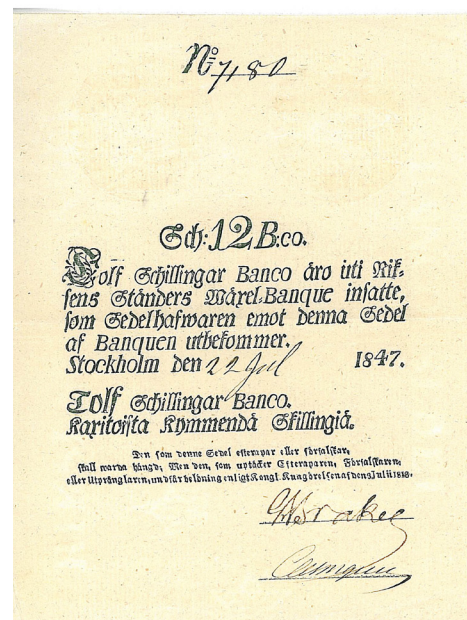 No 7180
Sch: 12 B:co.
Tolf Schillingar Banco äro uti Rik-
sens Ständers Wäxel-Banque insatte,
som Sedelhafwaren emot denna Sedel
af Banquen utbekommer.
Stockholm den 22 Jul 1847.
Tolf Schillingar Banco.
Kaxitoista Kymmendä Skillingiä.
Den som denne Sedel efterapar eller förfalskar,
skall warda hängd; Men den, som uptäcker Efteraparen, Förfalskaren,
eller Utprånglaren, undfår belöning enligt Kongl. Kungörelsen af den Julii 1818.